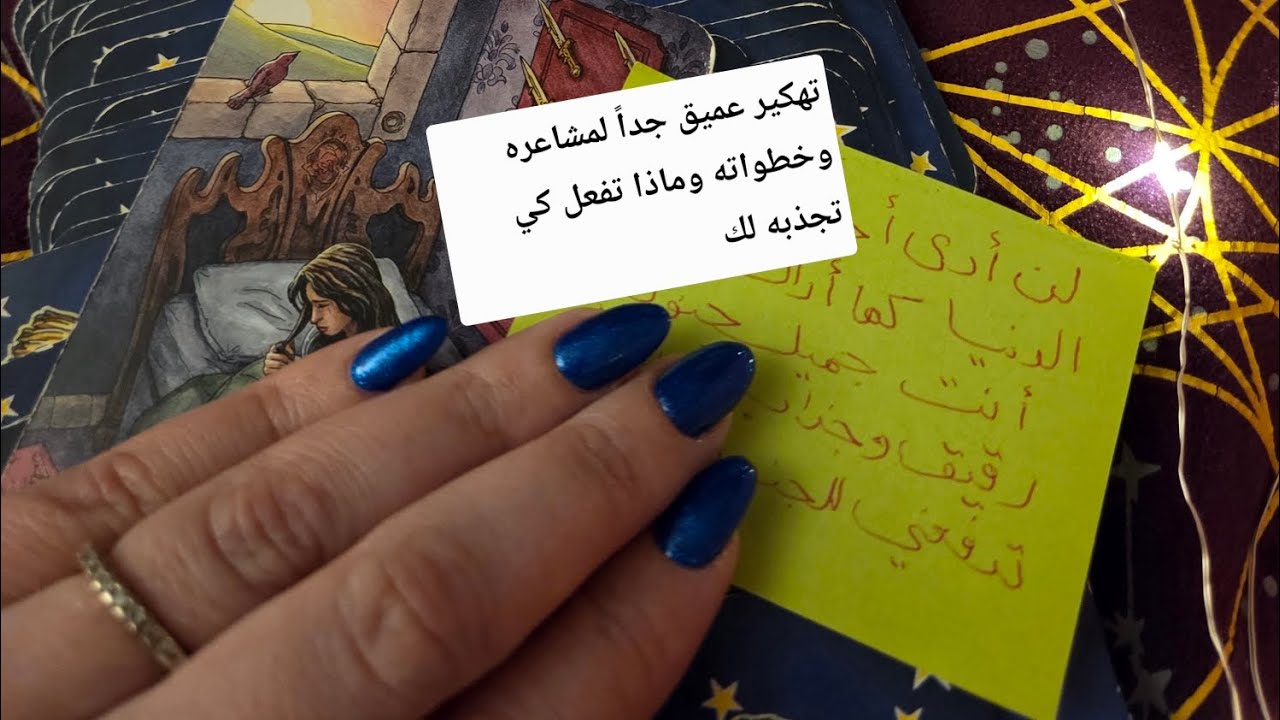 تهكير عميق جداً لمشاعره
وخطواته وماذا تفعل كي
تجذبه لك
لن أرى
الدنيا كما أراك
أنت جميل
رقيق وجذاب
تدفعني للجنو